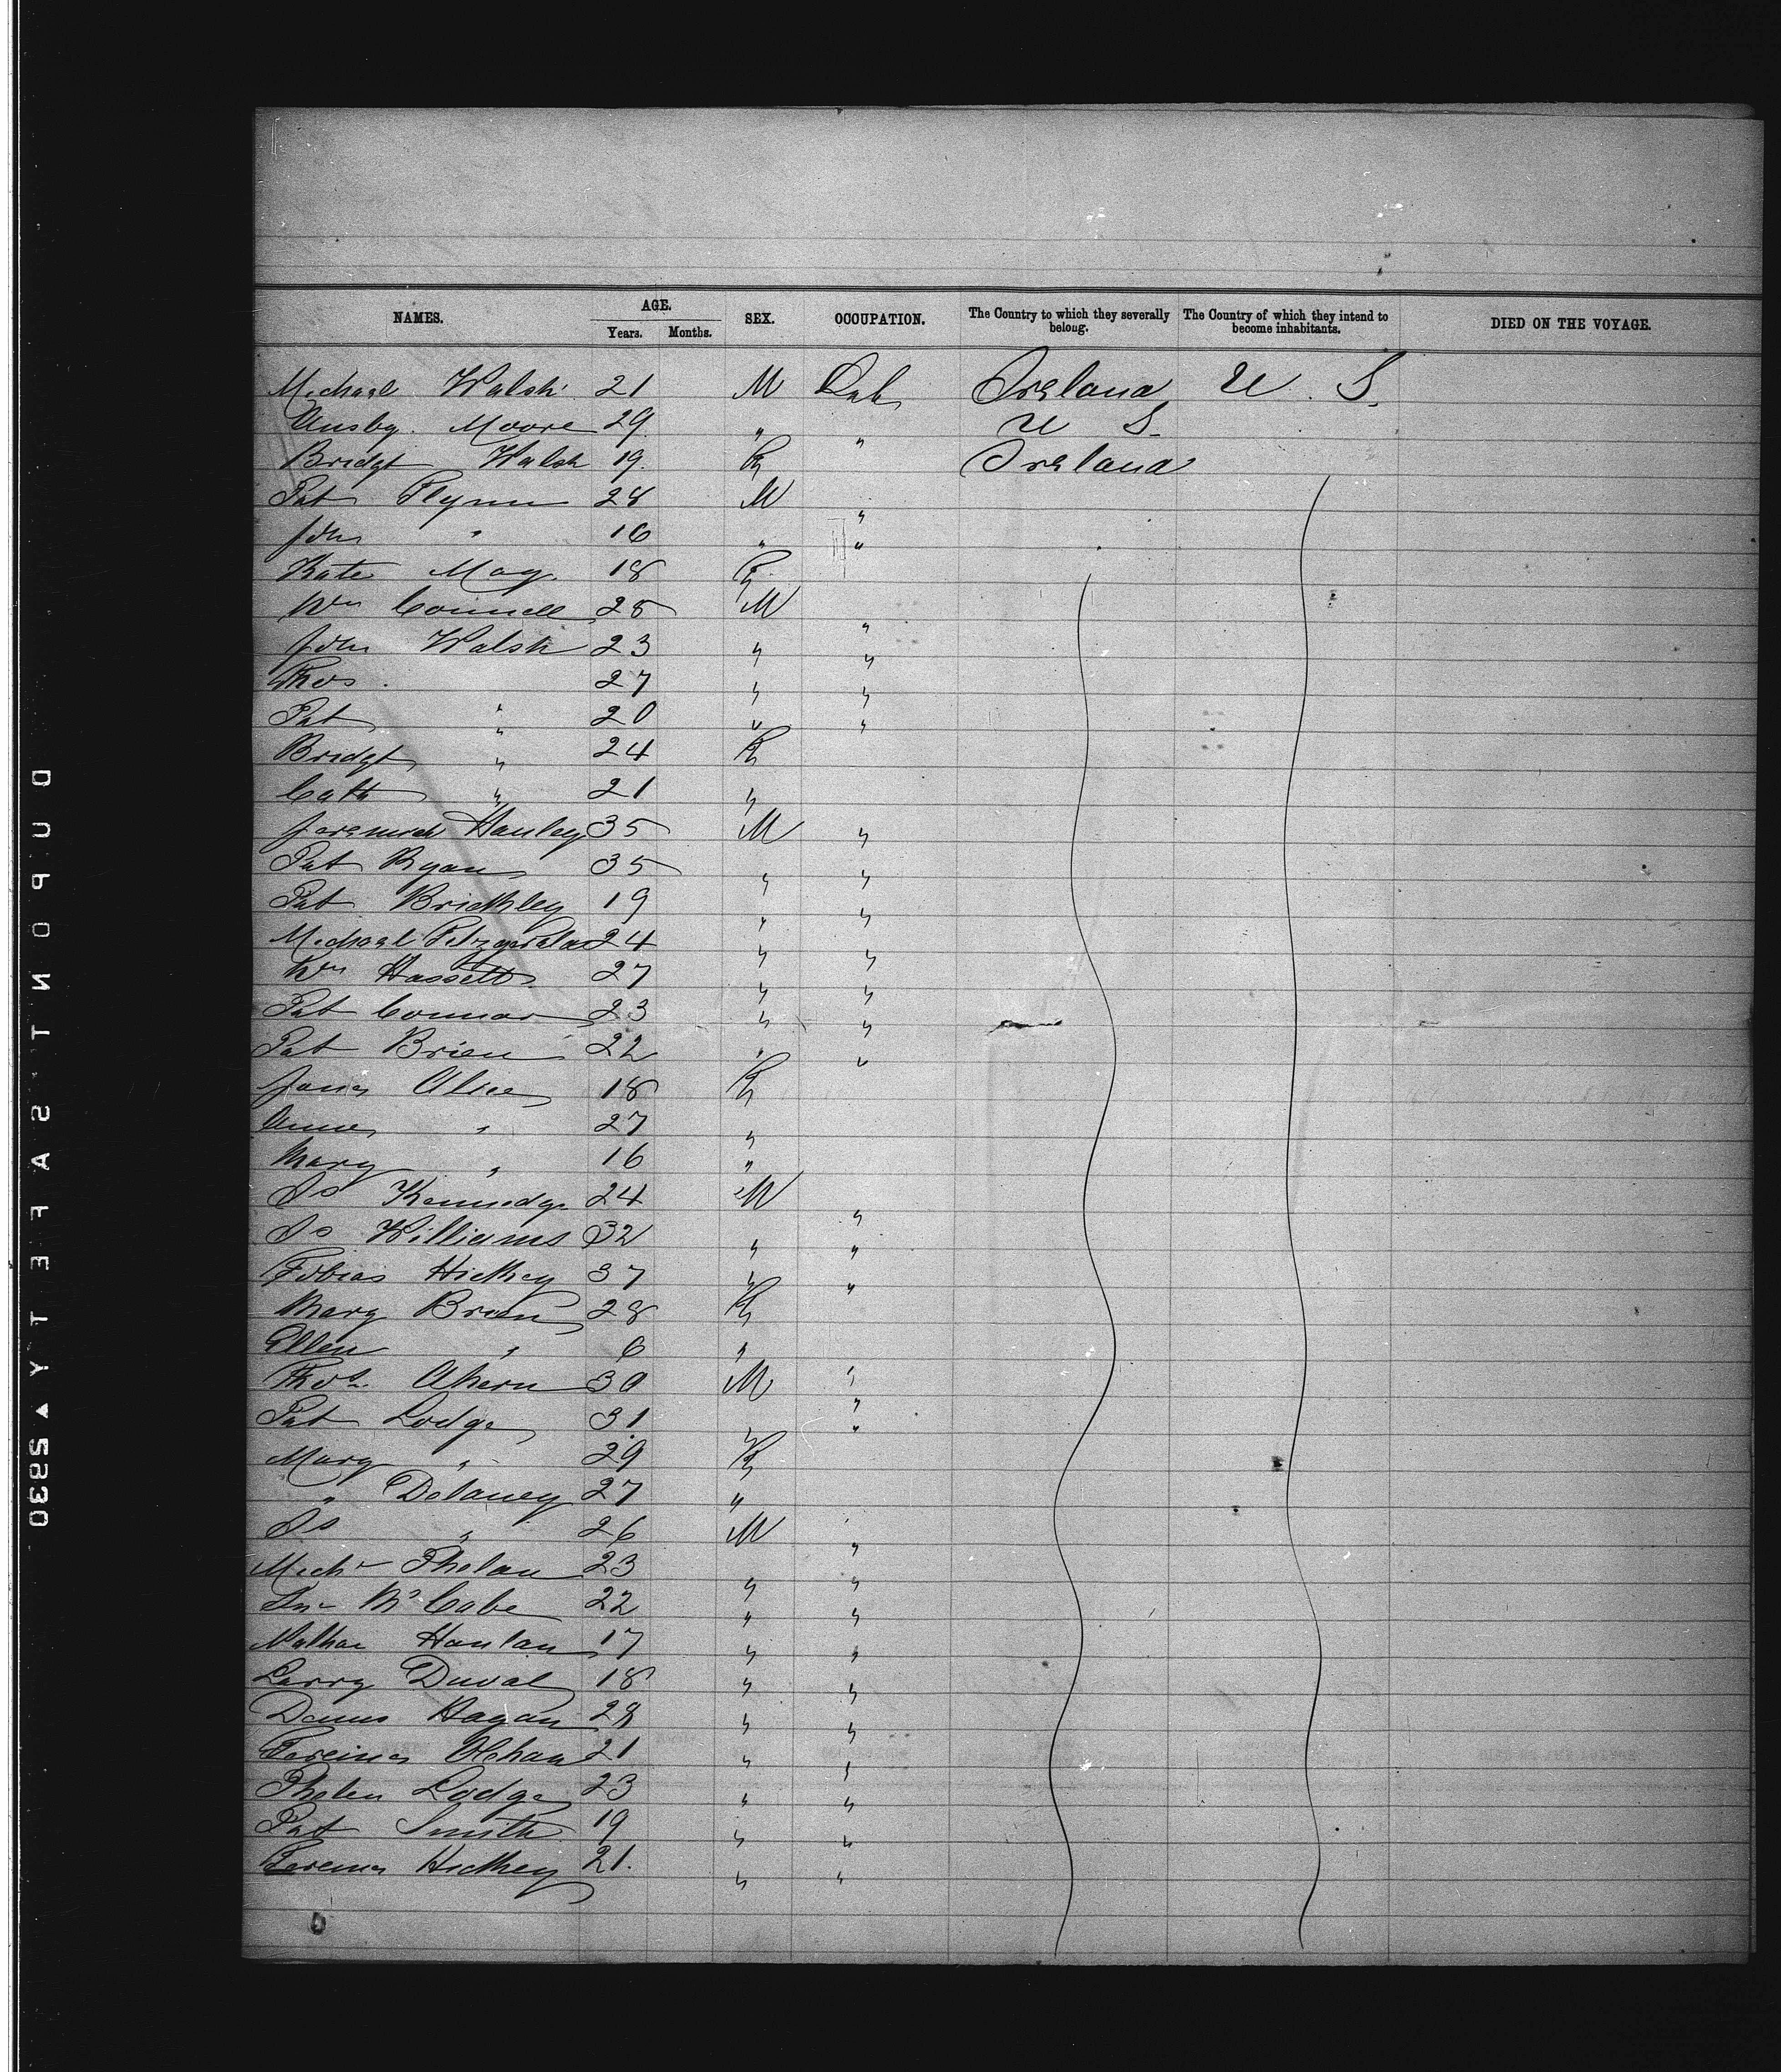 NAMES. AGE. Years. Months. SEX. OCCUPATION. The Country to which they severally belong. The Country of which they intend to become inhabitants. DIED ON THE VOYAGE.
Michael Walsh 21 M Lab Ireland U. S.
Moore 29 " " U S
Bridgt Walsh 19 F Ireland
Pat Flynn 28 M "
John " 16 " "
Kate May 18 F
Wm Connell 25 M "
John Walsh 23 " "
Thos 27 " "
Pat " 20 " "
Bridgt " 24 F
Cath " 21 "
Jeremiah Hanley 35 M "
Pat Ryan 35 " "
Pat Brickley 19 " "
Michael Fitzgerald 24 " "
Wm Hassett 27 " "
Pat Connor 23 " "
Pat Brien 22 " "
18 F
Anne " 27 "
Mary " 16 "
Kennedy 24 M "
Williams 32 " "
Tobias Hickey 37 " "
Mary Brien 28 F
Ellen " 6 "
Thos. Ahern 30 M "
Pat Lodge 31 " "
Mary " 29 F
" Delaney 27 "
" 26 M "
Michl Phelan 23 " "
McCabe 22 " "
Hanlan 17 " "
Larry Duval 18 " "
Hagan 28 " "
21 " "
Lodge 23 " "
Pat Smith 19 " "
Hickey 21. " "
DUPONT SAFETY ▲ 2930